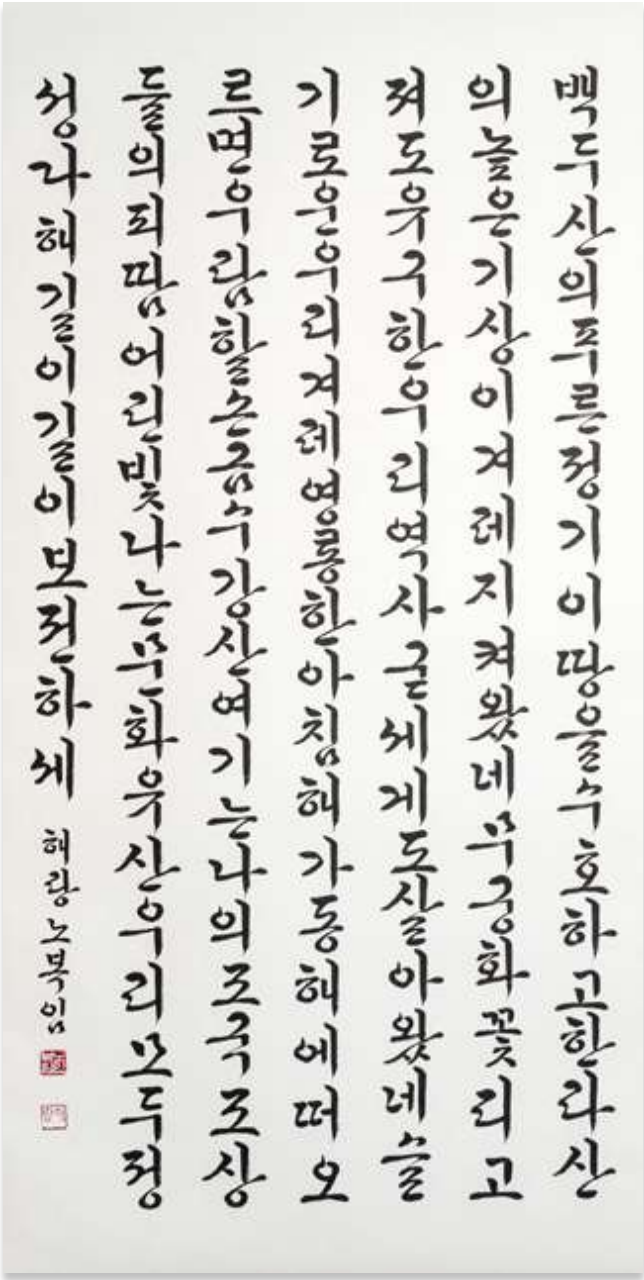 백두산의푸른정기이땅을수호하고한라산
의높은기상이겨레지켜왔네무궁화꽃피고
져도유구한우리역사굳세게도살아왔네슬
기로운우리겨레영롱한아침해가동해에떠오
르면우람할손금수강산여기는나의조국조상
들의피땀어린빛나는문화유산우리모두정
성다해길이길이보전하세
해랑노복임